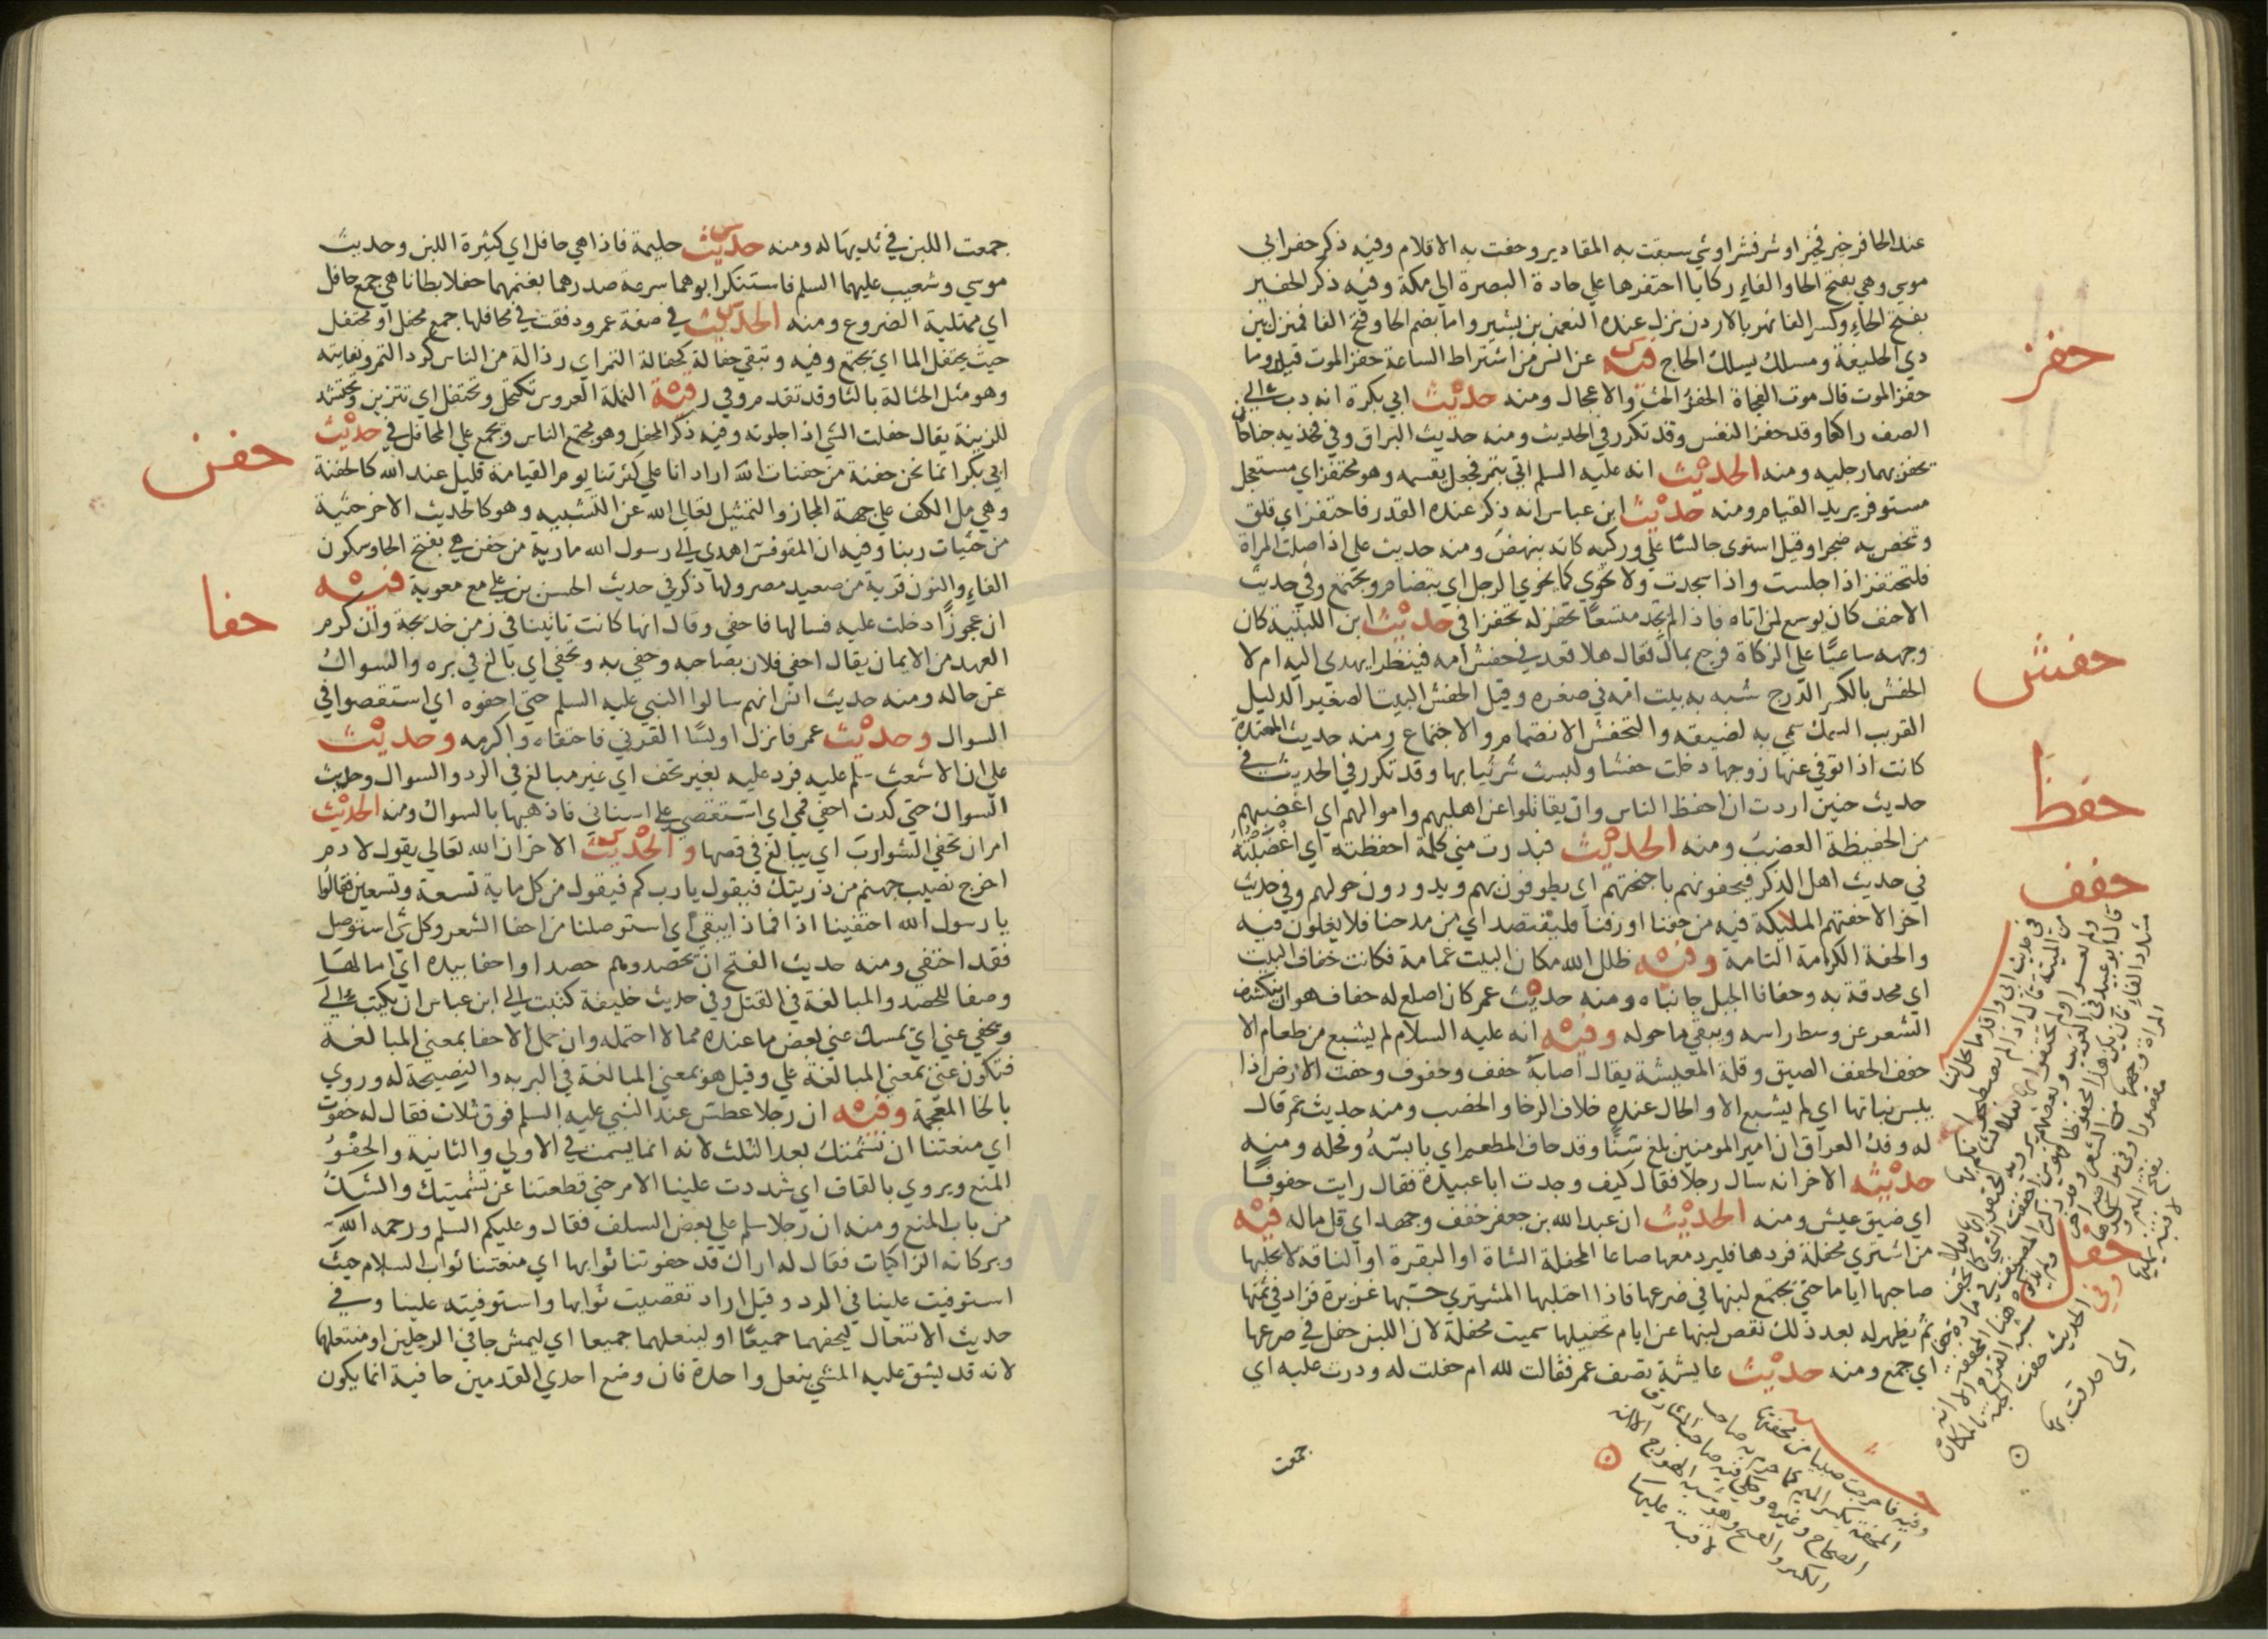 عند الحافر خير فخيرا وشر فشرا وشي سبقت به المقادير وجفت به الاقلام وفيه ذكر حفر ابي
موسي وهي بفتح الحا والفاء ركايا احتفرها علي جادة البصرة الي مكة وفيه ذكر الحفير
بفتح الحاء وكسر الفا نهر بالاردن نزل عنده النعمن بن بشير واما بضم الحا وفتح الفا فمنزل بين
ذي الحليفة ومسلك يسلكه الحاج فيه عن انس من اشتراط الساعة حفز الموت قيل وما
حفز الموت قال موت الفجأة الحفز الحث والاعجال ومنه حديث ابي بكرة انه دب الي
الصف راكعا وقد حفزه النفس وقد تكرر في الحديث ومنه حديث البراق وفي فخذيه جناحان
يحفز بهما رجليه ومنه الحديث انه عليه السلم اتي بتمر فجعل يقسمه وهو محتفز اي مستعجل
مستوفز يريد القيام ومنه حديث ابن عباس انه ذكر عنده القدر فاحتفز اي قلق
وشخص به ضجرا وقيل استوي جالسا علي وركيه كانه ينهض ومنه حديث علي اذا صلت المراة
فلتحتفز اذا جلست واذا سجدت ولا تخوي كما يخوي الرجل اي يتضام ويجتمع وفي حديث
الاحنف كان يوسع لمن اتاه فاذا لم يجد متسعا تحفز له تحفزا في حديث ابن اللتبية كان
وجهه ساعيا علي الزكاة فرجع بمال فقال هلا قعد في حفش امه فينظر ايهدي اليه ام لا
الحفش بالكسر الدرج شبه به بيت امه في صغره وقيل الحفش البيت الصغير الذليل
القريب السمك سمي به لضيقه والتحفش الانضمام والاجتماع ومنه حديث المعتدة
كانت اذا توفي عنها زوجها دخلت حفشا ولبست شر ثيابها وقد تكرر في الحديث في
حديث حنين اردت ان احفظ الناس وان يقاتلوا عن اهليهم واموالهم اي اغضبهم
من الحفيظة الغضب ومنه الحديث فبدرت مني كلمة احفظته اي اغضبته
في حديث اهل الذكر فيحفونهم باجنحتهم اي يطوفون بهم ويدورون حولهم وفي حديث
اخر الا حفتهم الملايكة فيه من حفنا او رفنا فليقتصد اي من مدحنا فلا يغلون فيه
والحفة الكرامة التامة وفيه ظلل الله مكان البيت غمامة فكانت حفاف البيت
اي محدقة به وحفافا الجبل جانباه ومنه حديث عمر كان اصلع له حفاف هو ان ينكشف
الشعر عن وسط راسه ويبقي ما حوله وفيه انه عليه السلام لم يشبع من طعام الا
حفف الحفف الضيق وقلة المعيشة يقال اصابه حفف وحفوف وحفت الارض اذا
يبس نباتها اي لم يشبع الا والحال عنده خلاف الرخا والخصب ومنه حديث عمر قال
له وفد العراق ان امير المومنين بلغ سنا وقد حاف المطعم اي يابسه وقحله ومنه
حديثه الاخر انه سال رجلا فقال كيف وجدت ابا عبيدة فقال رايت حفوفا
اي ضيق عيش ومنه الحديث ان عبد الله بن جعفر حفف وجهد اي قل ماله فيه
من اشتري محفلة فردها فليرد معها صاعا المحفلة الشاة او البقرة او الناقة لا يحلبها
صاحبها اياما حتي يجتمع لبنها في ضرعها فاذا احتلبها المشتري حسبها غزيرة فزاد في ثمنها
ثم يظهر له بعد ذلك نقص لبنها عن ايام تحفيلها سميت محفلة لان اللبن حفل في ضرعها
اي جمع ومنه حديث عايشة تصف عمر فقالت لله ام حفلت له ودرت عليه اي
جمعت
حفز
حفش
حفظ
حفف
حفل
جمعت اللبن في ثديها له ومنه حديث حليمة فاذا هي حافل اي كثيرة اللبن وحديث
موسي وشعيب عليهما السلم فاستنكر ابوهما سرعة صدرهما بغنمهما حفلا بطانا هي جمع حافل
اي ممتلية الضروع ومنه الحديث في صفة عمر ودفقت في محافلها جمع محفل او محتفل
حيث يحتفل الما اي يجتمع وفيه وتبقي حفالة كحفالة التمر اي رذالة من الناس كرد التمر ونفايته
وهو مثل الحثالة بالثا وقد تقدم وفي رقية النملة العروس تكتحل وتحتفل اي تتزين وتحتشد
للزينة يقال حفلت الشي اذا جلوته وفيه ذكر المحفل وهو مجتمع الناس ويجمع علي المحافل في حديث
ابي بكر انما نحن حفنة من حفنات الله اراد انا علي كثرتنا يوم القيامة قليل عند الله كالحفنة
وهي مل الكف علي جهة المجاز والتمثيل تعالي الله عن التشبيه وهو كالحديث الاخر حثية
من حثيات ربنا وفيه ان المقوقس اهدي الي رسول الله مارية من حفن هي بفتح الحا وسكون
الفاء والنون قرية من صعيد مصر ولها ذكر في حديث الحسن بن علي مع معوية فيه
ان عجوزا دخلت عليه فسالها فاحفي وقال انها كانت تاتينا في زمن خديجة وان كرم
العهد من الايمان يقال احفي فلان بصاحبه وحفي به وتحفي اي بالغ في بره والسوال
عن حاله ومنه حديث انس انهم سالوا النبي عليه السلم حتي احفوه اي استقصوا في
السوال وحديث عمر فانزل اويسا القرني فاحتفاه واكرمه وحديث
علي ان الاشعث سلم عليه فرد عليه بغير تحف اي غير مبالغ في الرد والسوال وحديث
السواك حتي كدت احفي فمي اي استقصي علي اسناني فاذهبها بالسواك ومنه الحديث
امر ان تحفي الشوارب اي يبالغ في قصها والحديث الاخر ان الله تعالي يقول لادم
اخرج نصيب جهنم من ذريتك فيقول يا رب كم فيقول من كل ماية تسعة وتسعين فقالوا
يا رسول الله احتفينا اذا فماذا يبقي اي استوصلنا من احفا الشعر وكل شي استوصل
فقد احتفي ومنه حديث الفتح ان تحصدوهم حصدا واحفا بيده اي امالها
وصفا للحصد والمبالغة في القتل وفي حديث خليفة كتبت الي ابن عباس ان يكتب الي
ويحفي عني اي يمسك عني بعض ما عنده مما لا احتمله وان حمل الاحفا بمعني المبالغة
فتكون عني بمعني المبالغة علي وقيل هو بمعني المبالغة في البر به والنصيحة له وروي
بالخا المعجمة وفيه ان رجلا عطس عند النبي عليه السلم فوق ثلاث فقال له حفوت
اي منعتنا ان نشمتك بعد الثلث لانه انما يسمت في الاولي والثانية والحفو
المنع ويروي بالقاف اي شددت علينا الامر حتي قطعتنا عن تشميتك والشد
من باب المنع ومنه ان رجلا سلم علي بعض السلف فقال وعليكم السلم ورحمه الله
وبركاته الزاكيات فقال له اراك قد حفوتنا ثوابها اي منعتنا ثواب السلام حيث
استوفيت علينا في الرد وقيل اراد تقصيت ثوابها واستوفيته علينا وفي
حديث الانتعال ليحفهما جميعا او لينعلهما جميعا اي ليمش حافي الرجلين او منتعلهما
لانه قد يشق عليه المشي بنعل واحدة فان وضع احدي القدمين حافية انما يكون
حفن
حفا